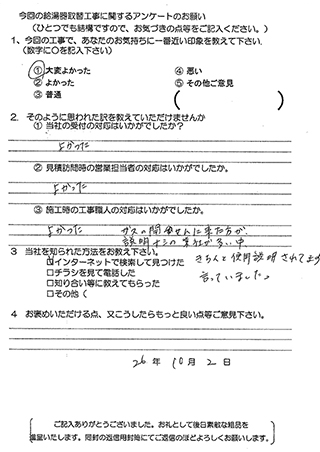 今回の給湯器取替工事に関するアンケートのお願い
(ひとつでも結構ですので、お気づきの点等をご記入ください。)
1、今回の工事で、あなたのお気持ちに一番近い印象を教えて下さい.
(数字に○を記入下さい)
① 大変よかった
④ 悪い
② よかった
⑤ その他ご意見
③ 普通
( )
2. そのように思われた訳を教えていただけませんか
① 当社の受付の対応はいかがでしたか?
よかった
② 見積訪問時の営業担当者の対応はいかがでしたか。
よかった
③ 施工時の工事職人の対応はいかがでしたか。
よかった ガスの開栓に来た方が、
説明ナシの業社が多い中
きちんと使用説明されてますと
言っていました。
3 当社を知られた方法をお教え下さい。
□インターネットで検索して見つけた
□チラシを見て電話した
□知り合い等に教えてもらった
□その他(
4 お褒めいただける点、又こうしたらもっと良い点等ご意見下さい。
26年 10月 2日
ご記入ありがとうございました。お礼として後日素敵な粗品を
進呈いたします。同封の返信用封筒にてご返信のほどよろしくお願いします。